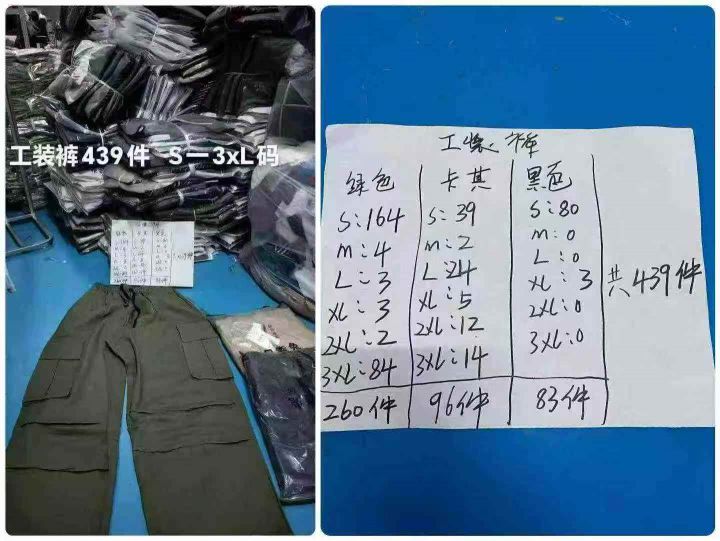 工装裤439件 S—3xL码
工装裤
绿色 卡其 黑色
S:164 S:39 S:80
m:4 m:2 m:0
L:3 L:24 L:0
xL:3 xL:5 xL:3
2xL:2 2xL:12 2xL:0
3xL:84 3xL:14 3xL:0
共439件
260件 96件 83件